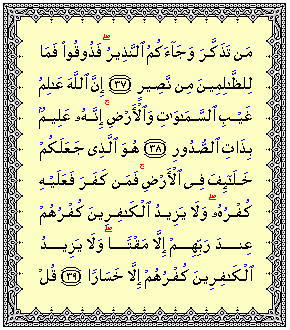 مَّن تَذَكَّرَ وَجَآءَكُمُ ٱلنَّذِيرُ ۖ فَذُوقُوا۟ فَمَا
لِلظَّـٰلِمِينَ مِن نَّصِيرٍ ﴿٣٧﴾ إِنَّ ٱللَّهَ عَـٰلِمُ
غَيْبِ ٱلسَّمَـٰوَٰتِ وَٱلْأَرْضِ ۚ إِنَّهُۥ عَلِيمٌۢ
بِذَاتِ ٱلصُّدُورِ ﴿٣٨﴾ هُوَ ٱلَّذِى جَعَلَكُمْ
خَلَـٰٓئِفَ فِى ٱلْأَرْضِ ۚ فَمَن كَفَرَ فَعَلَيْهِ
كُفْرُهُۥ ۖ وَلَا يَزِيدُ ٱلْكَـٰفِرِينَ كُفْرُهُمْ
عِندَ رَبِّهِمْ إِلَّا مَقْتًا ۖ وَلَا يَزِيدُ
ٱلْكَـٰفِرِينَ كُفْرُهُمْ إِلَّا خَسَارًا ﴿٣٩﴾ قُلْ